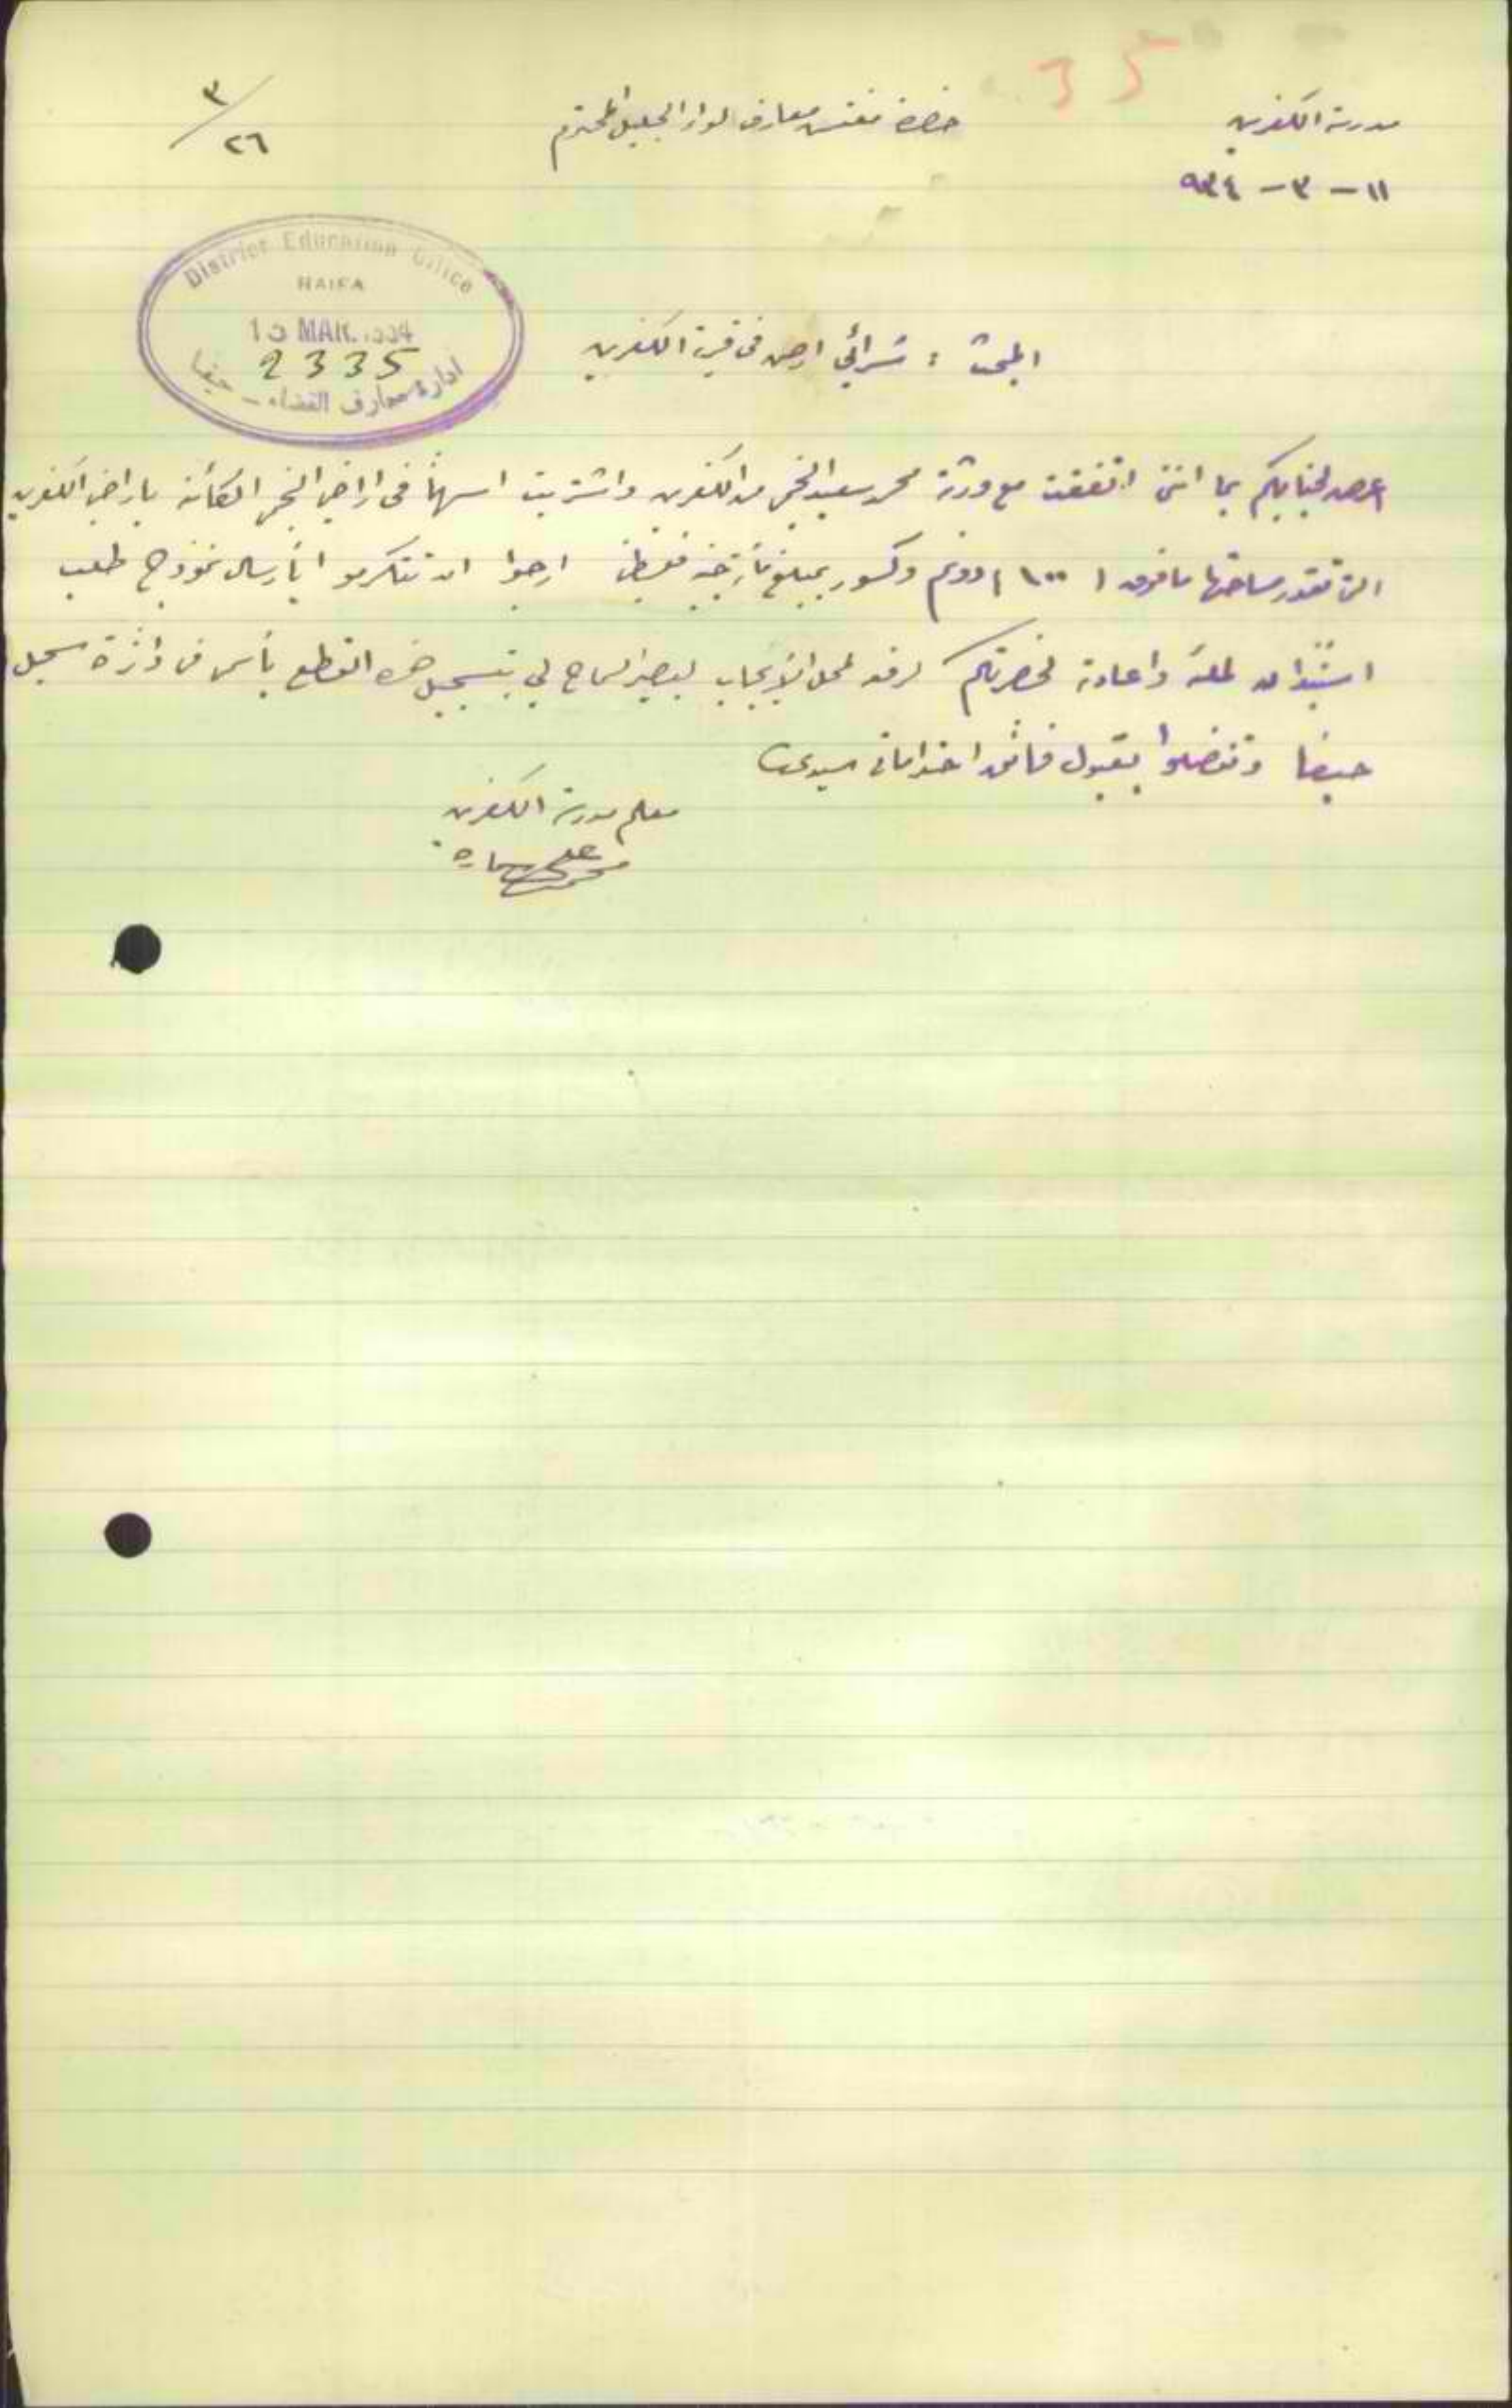 35
مدرسة الكفرين
حضرة مفتش معارف لواء الجليل المحترم
٣/٢٦
١١ - ٣ - ٩٣٤
District Education Office
HAIFA
13 MAR. 1934
2335
ادارة معارف القضاء - حيفا
المبحث : شرائي ارض في قرية الكفرين
اعرض لجنابكم بما انني اتفقت مع ورثة محمد سعيد من الكفرين واشتريت اسهماً في اراضي الكائنة باراضي الكفرين
التي تقدر مساحتها ما فوق ( ١٠٠ ) دونم وكسور بمبلغ ارجوا ان تتكرموا بأرسال نموذج طلب
استئذان لملئه واعادته لحضرتكم لرفعه لمحل الأيجاب ليصير السماح لي بتسجيل هذه القطع بأسمي في دائرة تسجيل
حيفا وتفضلوا بقبول فائق احتراماتي سيدي
معلم مدرسة الكفرين